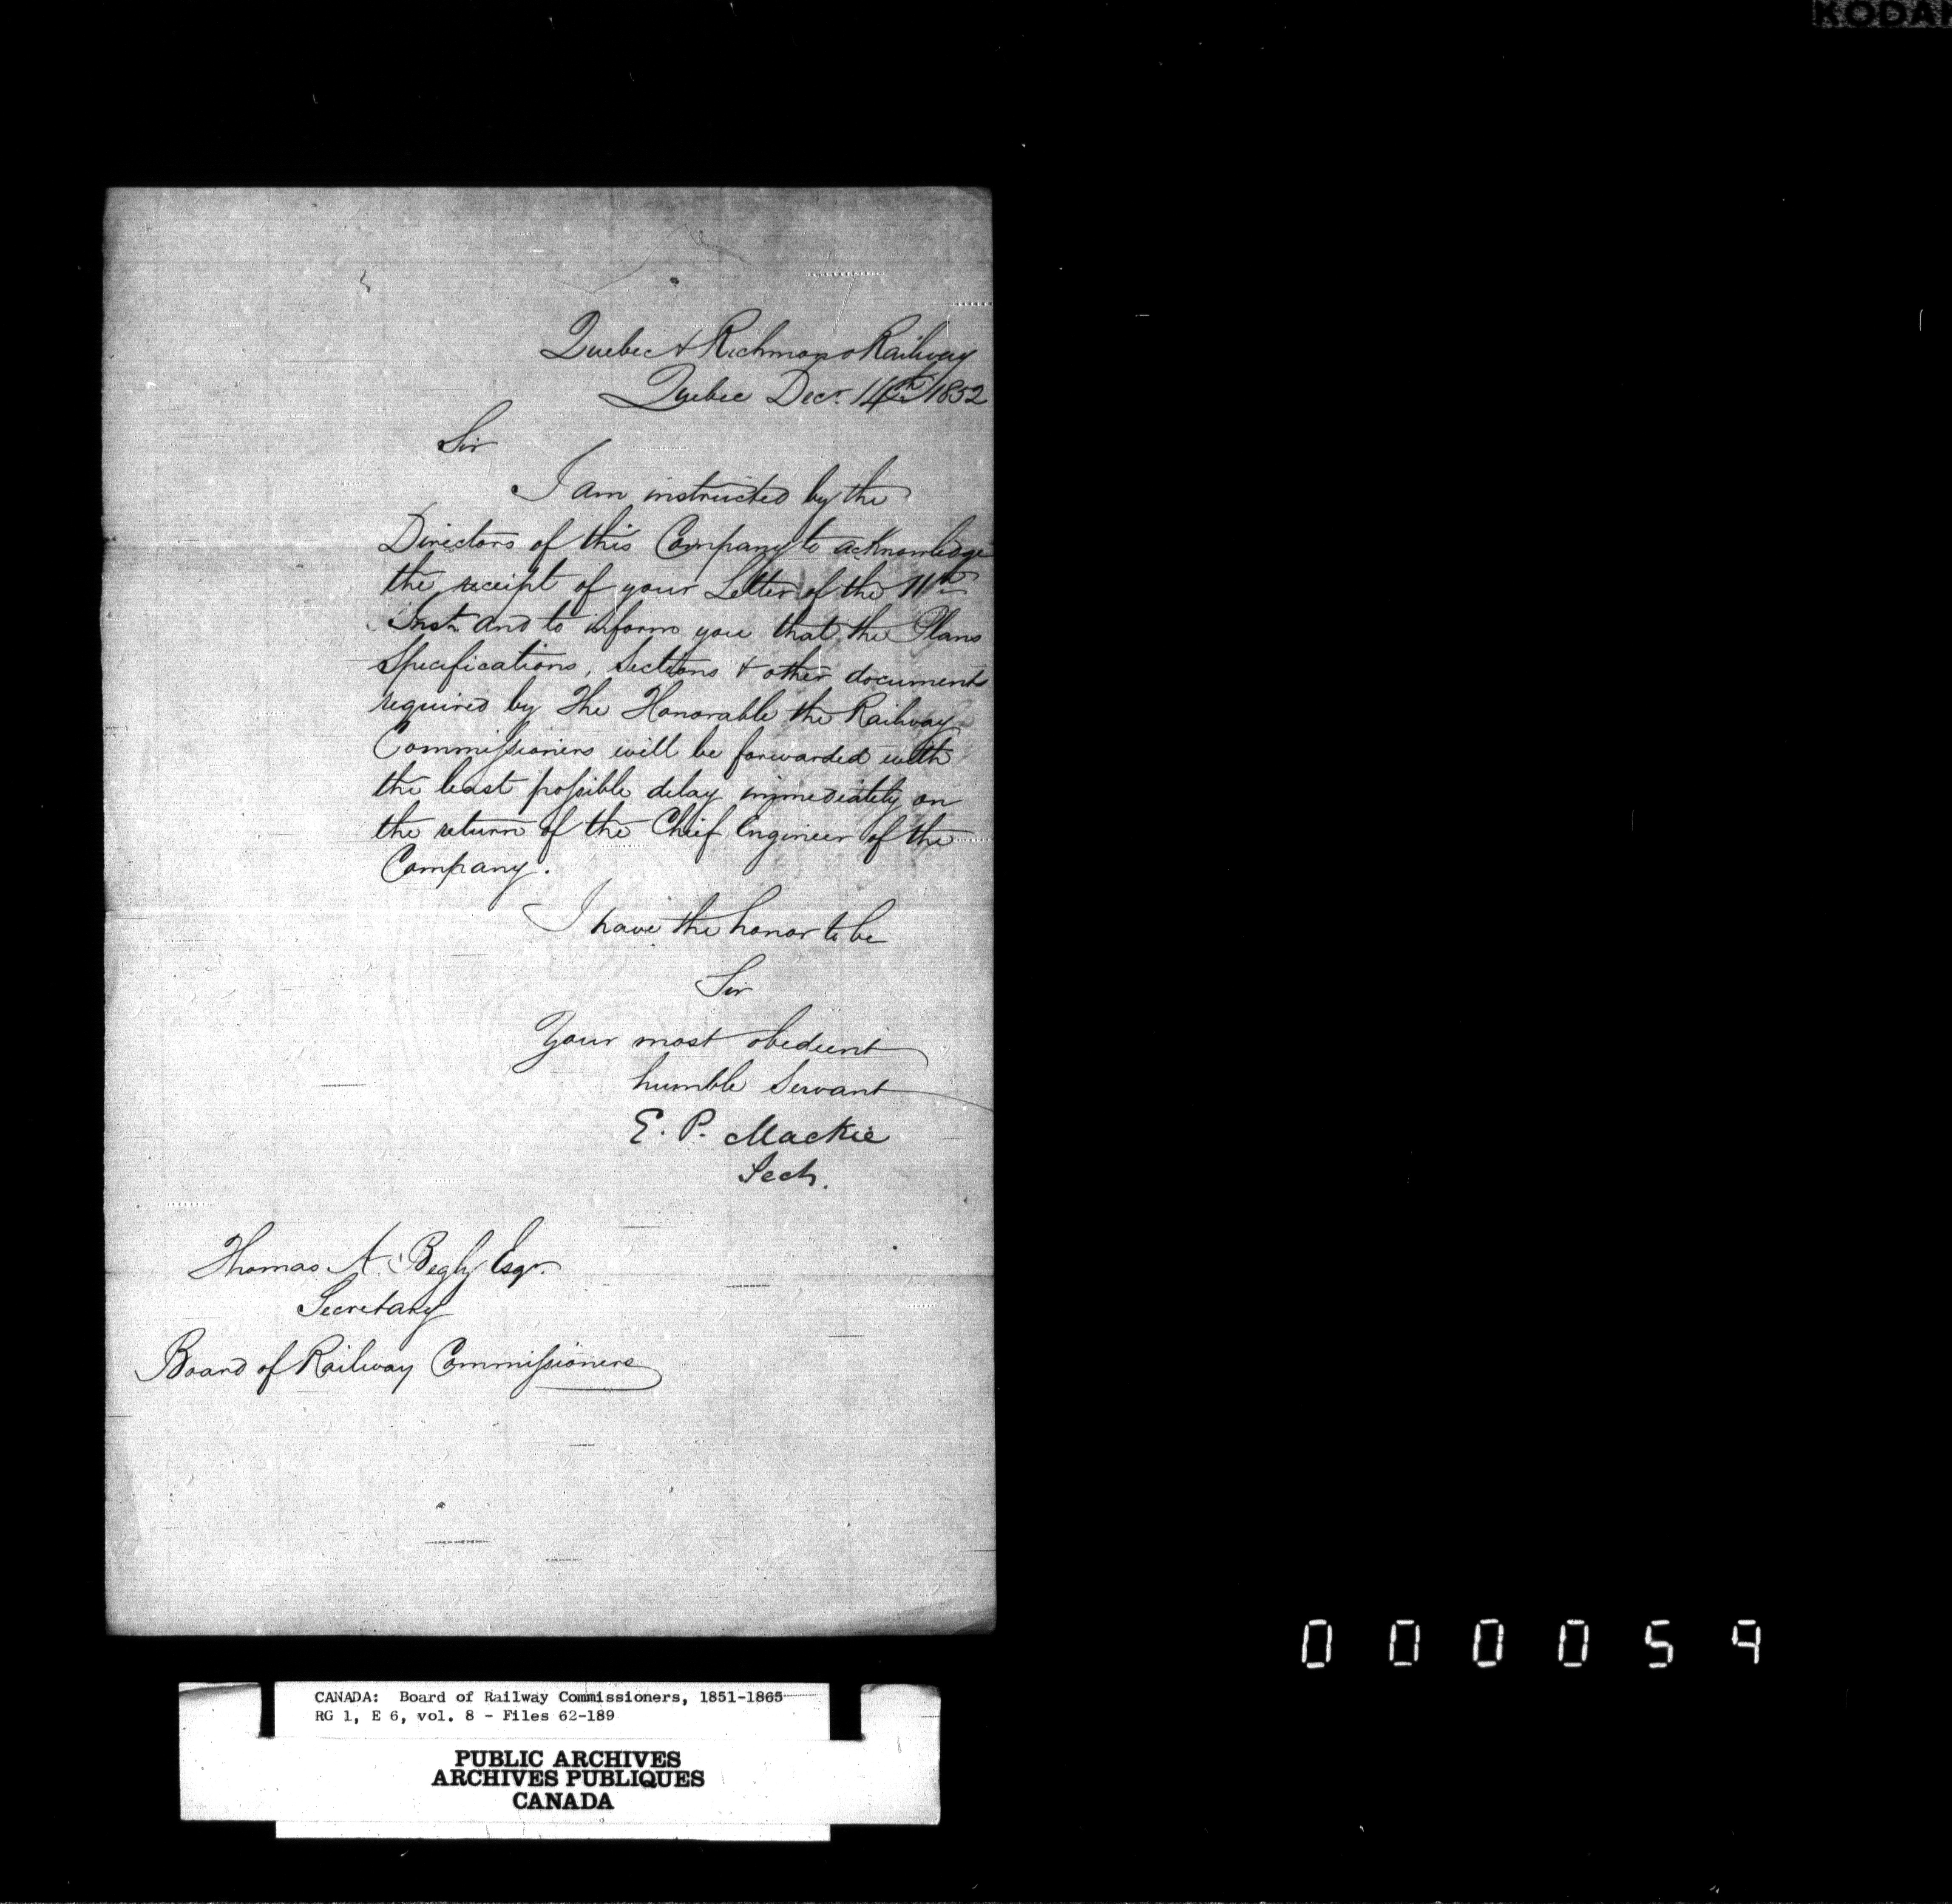 KODAK
Quebec & Richmond Railway
Quebec Decr. 14th 1852
Sir
I am instructed by the
Directors of this Company to acknowledge
the receipt of your Letter of the 11th
Inst. and to inform you that the Plans
Specifications, Sections & other documents
required by The Honorable the Railway
Commissioners will be forwarded with
the least possible delay immediately on
the return of the Chief Engineer of the
Company.
I have the honor to be
Sir
Your most obedient
humble Servant
E. P. Mackie
Secy.
Thomas A. Begly Esqr.
Secretary
Board of Railway Commissioners
000059
CANADA: Board of Railway Commissioners, 1851-1865
RG 1, E 6, vol. 8 - Files 62-189
PUBLIC ARCHIVES
ARCHIVES PUBLIQUES
CANADA